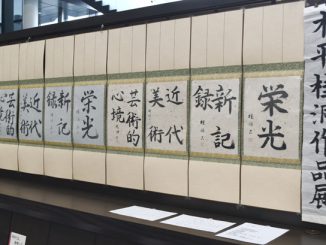 平桂洞作品展
栄光
新記
録
近代
美術
芸術的
心境
栄光
新記
録
近代
美術
芸術的
心境